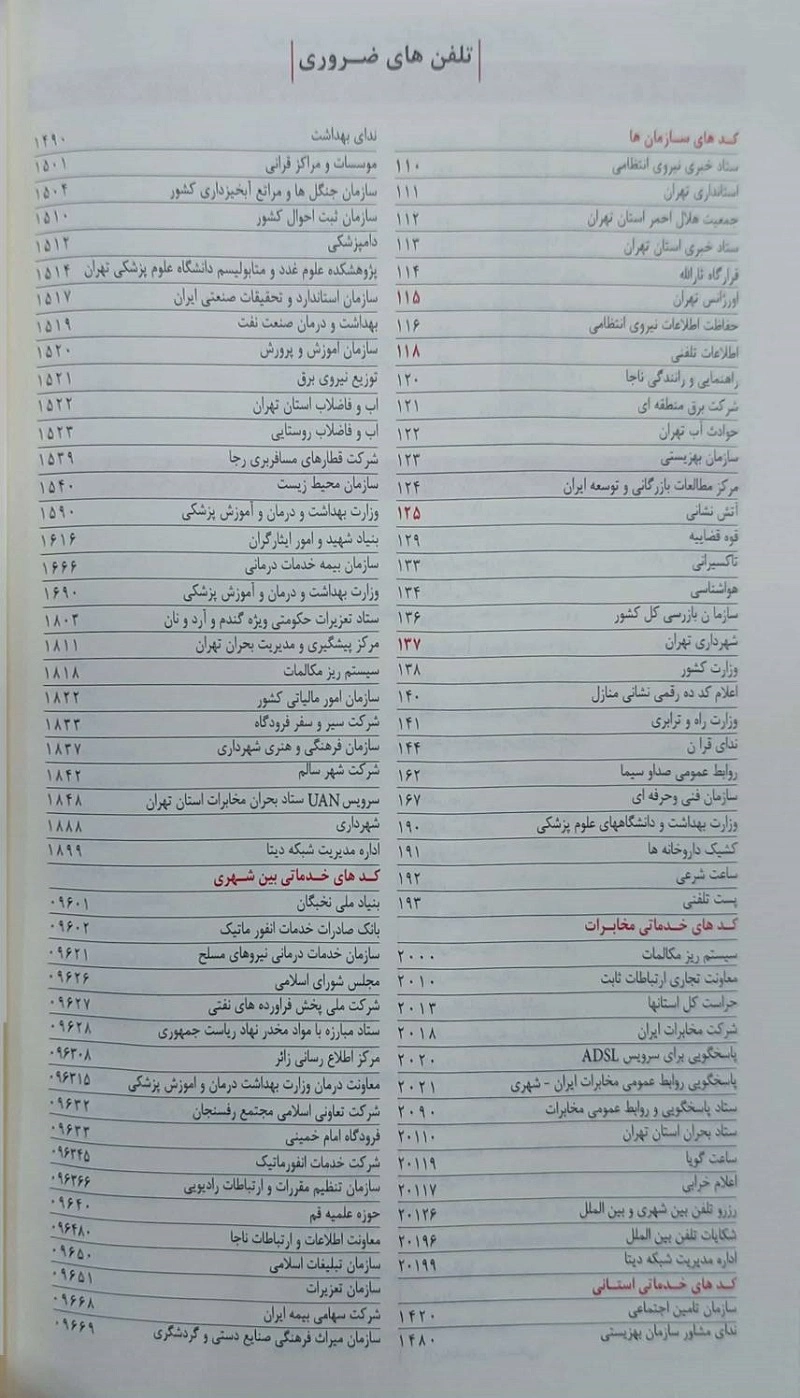 تلفن های ضروری
کد های سازمان ها
ستاد خبری نیروی انتظامی ۱۱۰
استانداری تهران ۱۱۱
جمعیت هلال احمر استان تهران ۱۱۲
ستاد خبری استان تهران ۱۱۳
قرارگاه ثارالله ۱۱۴
اورژانس تهران ۱۱۵
حفاظت اطلاعات نیروی انتظامی ۱۱۶
اطلاعات تلفنی ۱۱۸
راهنمایی و رانندگی ناجا ۱۲۰
شرکت برق منطقه ای ۱۲۱
حوادث آب تهران ۱۲۲
سازمان بهزیستی ۱۲۳
مرکز مطالعات بازرگانی و توسعه ایران ۱۲۴
آتش نشانی ۱۲۵
قوه قضاییه ۱۲۹
تاکسیرانی ۱۳۳
هواشناسی ۱۳۴
سازما ن بازرسی کل کشور ۱۳۶
شهرداری تهران ۱۳۷
وزارت کشور ۱۳۸
اعلام کد ده رقمی نشانی منازل ۱۴۰
وزارت راه و ترابری ۱۴۱
ندای قرا ن ۱۴۴
روابط عمومی صداو سیما ۱۶۲
سازمان فنی وحرفه ای ۱۶۷
وزارت بهداشت و دانشگاههای علوم پزشکی ۱۹۰
کشیک داروخانه ها ۱۹۱
ساعت شرعی ۱۹۲
پست تلفنی ۱۹۳
کد های خدماتی مخابرات
سیستم ریز مکالمات ۲۰۰۰
معاونت تجاری ارتباطات ثابت ۲۰۱۰
حراست کل استانها ۲۰۱۳
شرکت مخابرات ایران ۲۰۱۸
پاسخگویی برای سرویس ADSL ۲۰۲۰
پاسخگویی روابط عمومی مخابرات ایران - شهری ۲۰۲۱
ستاد پاسخگویی و روابط عمومی مخابرات ۲۰۹۰
ستاد بحران استان تهران ۲۰۱۱۰
ساعت گویا ۲۰۱۱۹
اعلام خرابی ۲۰۱۱۷
رزرو تلفن بین شهری و بین الملل ۲۰۱۲۶
شکایات تلفن بین الملل ۲۰۱۹۶
اداره مدیریت شبکه دیتا ۲۰۱۹۹
کد های خدماتی استانی
سازمان تامین اجتماعی ۱۴۲۰
ندای مشاور سازمان بهزیستی ۱۴۸۰
ندای بهداشت ۱۴۹۰
موسسات و مراکز قرانی ۱۵۰۱
سازمان جنگل ها و مراتع آبخیزداری کشور ۱۵۰۴
سازمان ثبت احوال کشور ۱۵۱۰
دامپزشکی ۱۵۱۲
پژوهشکده علوم غدد و متابولیسم دانشگاه علوم پزشکی تهران ۱۵۱۴
سازمان استاندارد و تحقیقات صنعتی ایران ۱۵۱۷
بهداشت و درمان صنعت نفت ۱۵۱۹
سازمان اموزش و پرورش ۱۵۲۰
توزیع نیروی برق ۱۵۲۱
اب و فاضلاب استان تهران ۱۵۲۲
اب و فاضلاب روستایی ۱۵۲۳
شرکت قطارهای مسافربری رجا ۱۵۳۹
سازمان محیط زیست ۱۵۴۰
وزارت بهداشت و درمان و آموزش پزشکی ۱۵۹۰
بنیاد شهید و امور ایثارگران ۱۶۱۶
سازمان بیمه خدمات درمانی ۱۶۶۶
وزارت بهداشت و درمان و آموزش پزشکی ۱۶۹۰
ستاد تعزیرات حکومتی ویژه گندم و آرد و نان ۱۸۰۳
مرکز پیشگیری و مدیریت بحران تهران ۱۸۱۱
سیستم ریز مکالمات ۱۸۱۸
سازمان امور مالیاتی کشور ۱۸۲۲
شرکت سیر و سفر فرودگاه ۱۸۳۳
سازمان فرهنگی و هنری شهرداری ۱۸۳۷
شرکت شهر سالم ۱۸۴۲
سرویس UAN ستاد بحران مخابرات استان تهران ۱۸۴۸
شهرداری ۱۸۸۸
اداره مدیریت شبکه دیتا ۱۸۹۹
کد های خدماتی بین شهری
بنیاد ملی نخبگان ۰۹۶۰۱
بانک صادرات خدمات انفور ماتیک ۰۹۶۰۲
سازمان خدمات درمانی نیروهای مسلح ۰۹۶۲۱
مجلس شورای اسلامی ۰۹۶۲۶
شرکت ملی پخش فراورده های نفتی ۰۹۶۲۷
ستاد مبارزه با مواد مخدر نهاد ریاست جمهوری ۰۹۶۲۸
مرکز اطلاع رسانی زائر ۰۹۶۳۰۸
معاونت درمان وزارت بهداشت درمان و اموزش پزشکی ۰۹۶۳۱۵
شرکت تعاونی اسلامی مجتمع رفسنجان ۰۹۶۳۲
فرودگاه امام خمینی ۰۹۶۳۳
شرکت خدمات انفورماتیک ۰۹۶۳۴۵
سازمان تنظیم مقررات و ارتباطات رادیویی ۰۹۶۳۶۶
حوزه علمیه قم ۰۹۶۴۰
معاونت اطلاعات و ارتباطات ناجا ۰۹۶۴۸۰
سازمان تبلیغات اسلامی ۰۹۶۵۰
سازمان تعزیرات ۰۹۶۵۱
شرکت سهامی بیمه ایران ۰۹۶۶۸
سازمان میراث فرهنگی صنایع دستی و گردشگری ۰۹۶۶۹